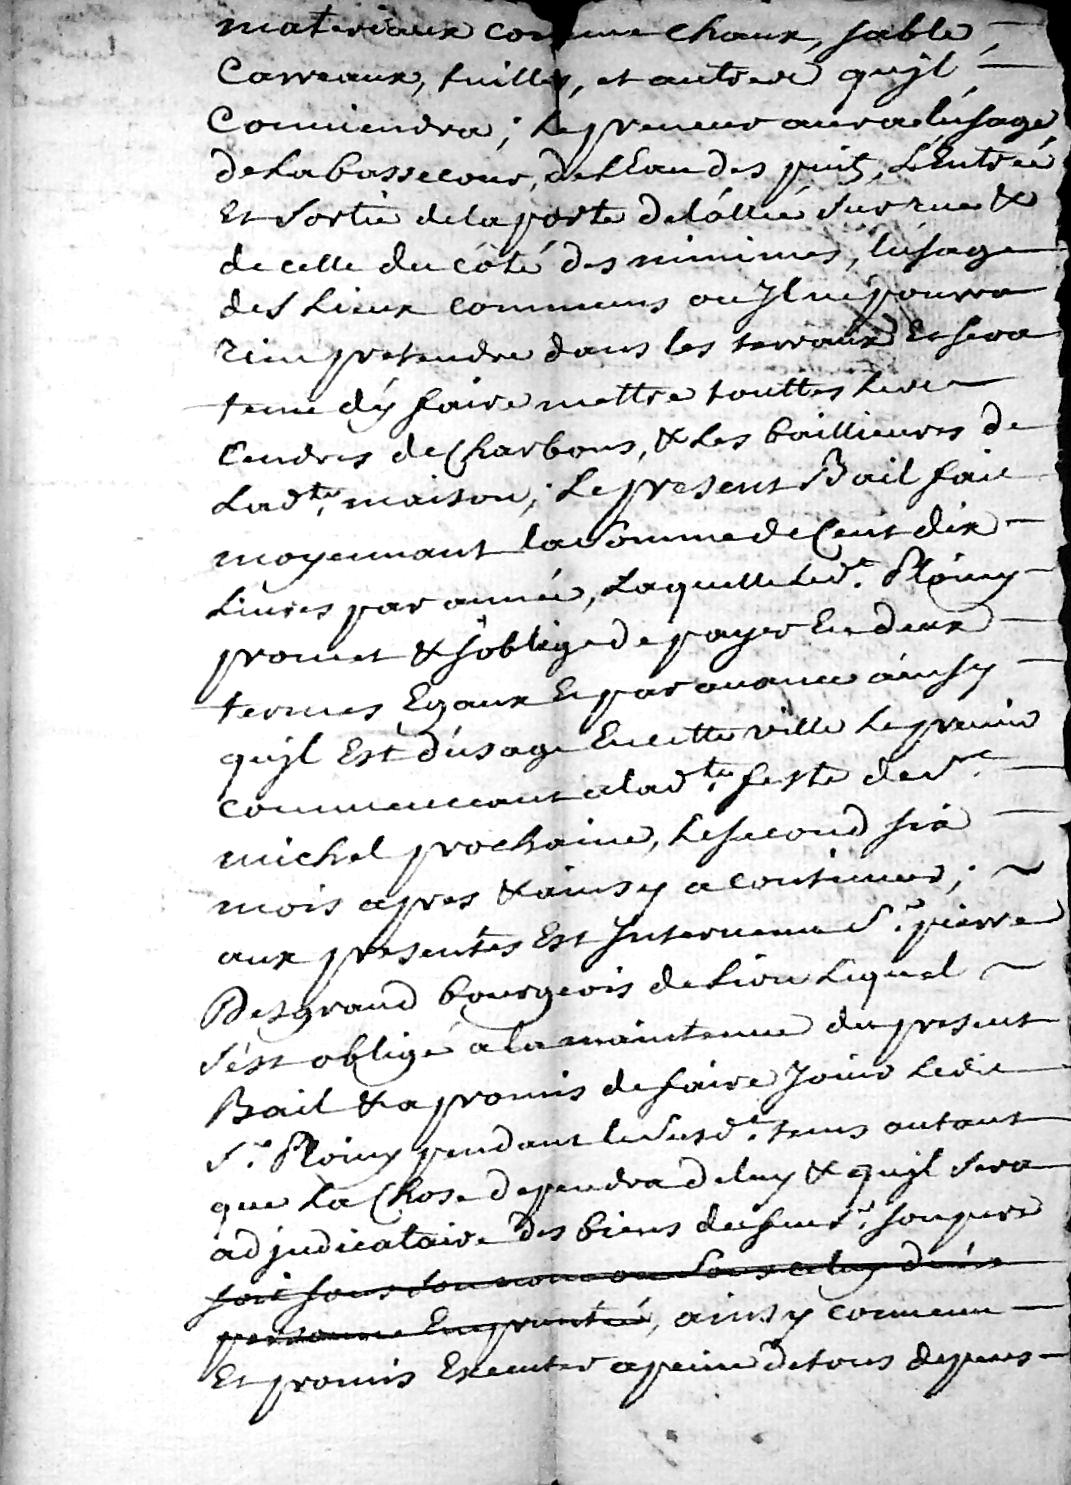 materiaux comme chaux, sable,
Carreaux, tuilles, et autres quyl
Conviendra; Le preneur aura l'usage
de La basse cour, de L'Eau des puits, L'Entrée
Et Sortie de la porte de l'allée Sur rue &
de celle du côté des minimes, l'usage
des Lieux communs ou Jl ne pourra
rien pretendre dans les terraux Et sera
tenu d'y faire mettre touttes Les
Cendres de Charbons, & Les baillieures de
Ladte. maison; Le present Bail fait
moyennant la Somme de Cent dix
Livres par année, Laquelle Ledt. Ploiny
promet & s'oblige de payer En deux
termes Egaux Et par avance ainsy
quyl Est d'usage En cette ville Le premier
commencant a ladte. feste de St.
michel prochaine, Le second six
mois apres & ainsy a continuer;
aux presentes Est Intervenu Sr. pierre
Desgrand bourgeois de Lion Lequel
s'est obligé a la maintenue du present
Bail & a promis de faire Jouir Ledit
Sr. Ploiny pendant le Susdt. tems autant
que La Chose dependra de luy & quyl Sera
adjudicataire des biens du feu Sr. son pere
soit sous son nom ou sous celuy d'une
personne Empruntée, ainsy convenu
Et promis Executer a peine de tous depens